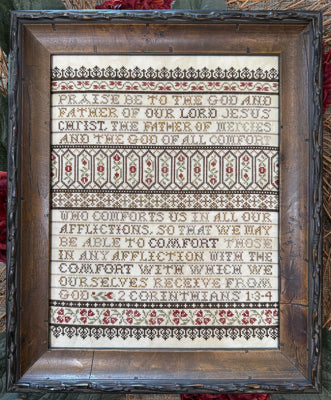 PRAISE BE TO THE GOD AND
FATHER OF OUR LORD JESUS
CHRIST, THE FATHER OF MERCIES
AND THE GOD OF ALL COMFORT
WHO COMFORTS US IN ALL OUR
AFFLICTIONS, SO THAT WE MAY
BE ABLE TO COMFORT THOSE
IN ANY AFFLICTION WITH THE
COMFORT WITH WHICH WE
OURSELVES RECEIVE FROM
GOD 2 CORINTHIANS 1:3-4